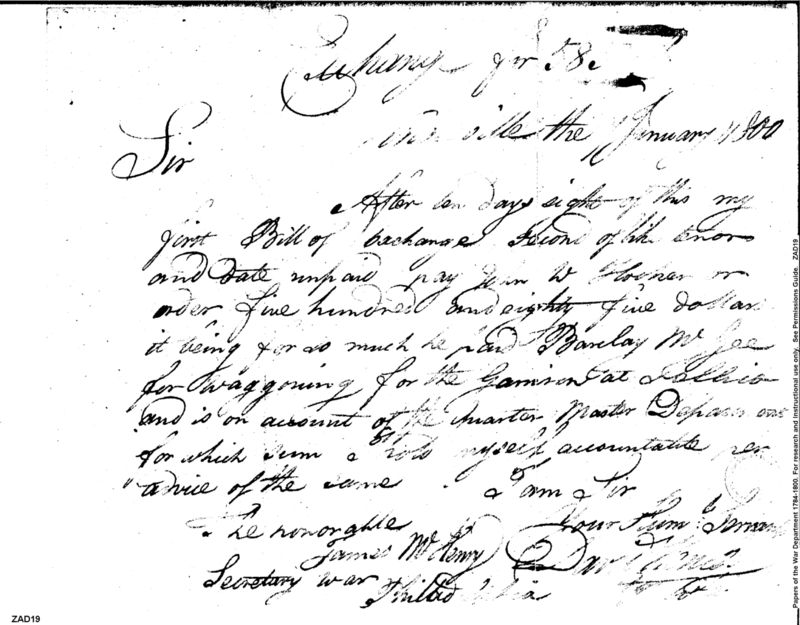 Exchang for 58
ville the January 1800
Sir
After ten days sight of this my
first Bill of Exchange second of the tenor
and date unpaid pay John W Hooker or
order five hundred and eighty five dollars
it being for so much he paid Barclay Mc Gee
for waggoning for the Garrison at Tellico
and is on account of the Quarter Master Department
for which sum I hold myself accountable per
advice of the same I am Sir
The honorable Your Hum
James McHenry
Secretary War
Philadelphia
ZAD19
Papers of the War Department 1784-1800. For research and Instructional use only. See Permissions Guide. ZAD19